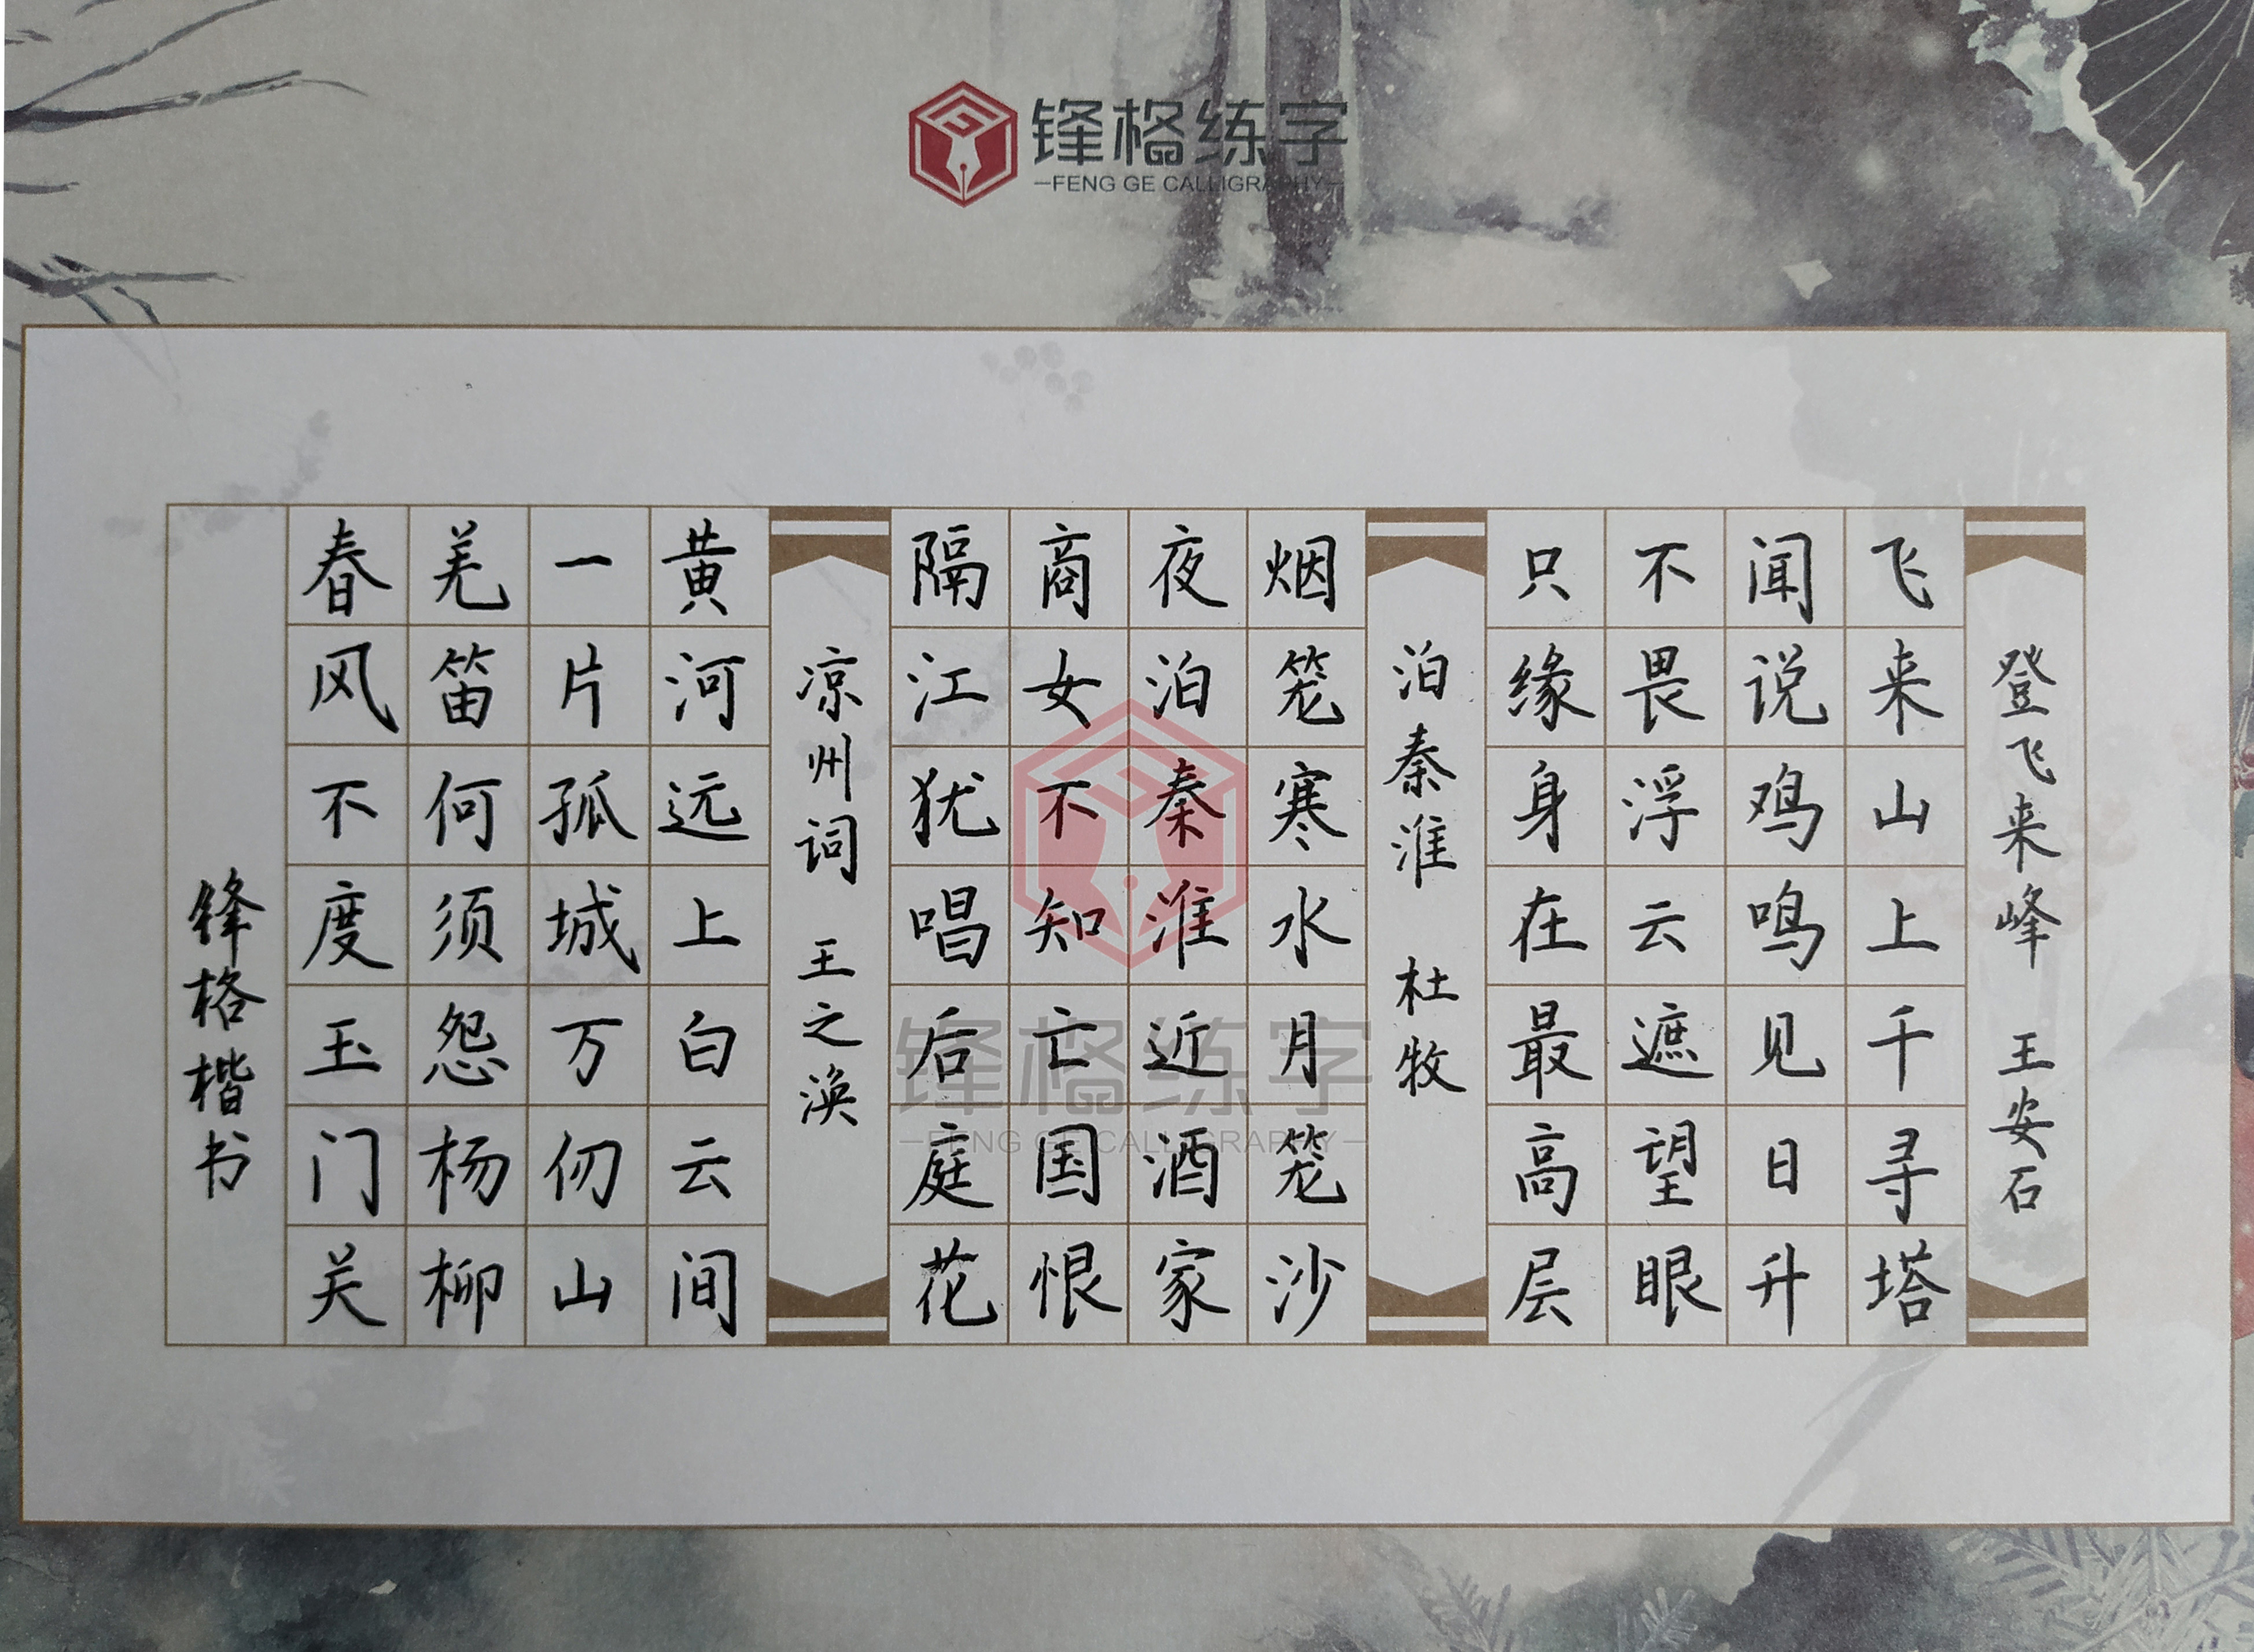 锋格练字
FENG GE CALLIGRAPHY
登飞来峰 王安石
飞来山上千寻塔
闻说鸡鸣见日升
不畏浮云遮望眼
只缘身在最高层
泊秦淮 杜牧
烟笼寒水月笼沙
夜泊秦淮近酒家
商女不知亡国恨
隔江犹唱后庭花
凉州词 王之涣
黄河远上白云间
一片孤城万仞山
羌笛何须怨杨柳
春风不度玉门关
锋格楷书
锋格练字
FENG GE CALLIGRAPHY